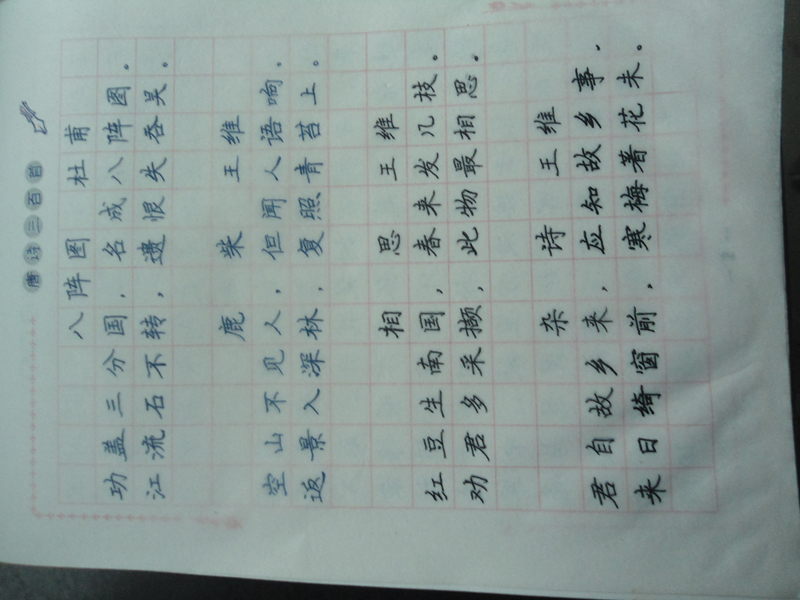 唐诗三百首
八阵图 杜甫
功盖三分国，名成八阵图。
江流石不转，遗恨失吞吴。
鹿柴 王维
空山不见人，但闻人语响。
返景入深林，复照青苔上。
相思 王维
红豆生南国，春来发几枝。
劝君多采撷，此物最相思。
杂诗 王维
君自故乡来，应知故乡事，
来日绮窗前，寒梅著花未。